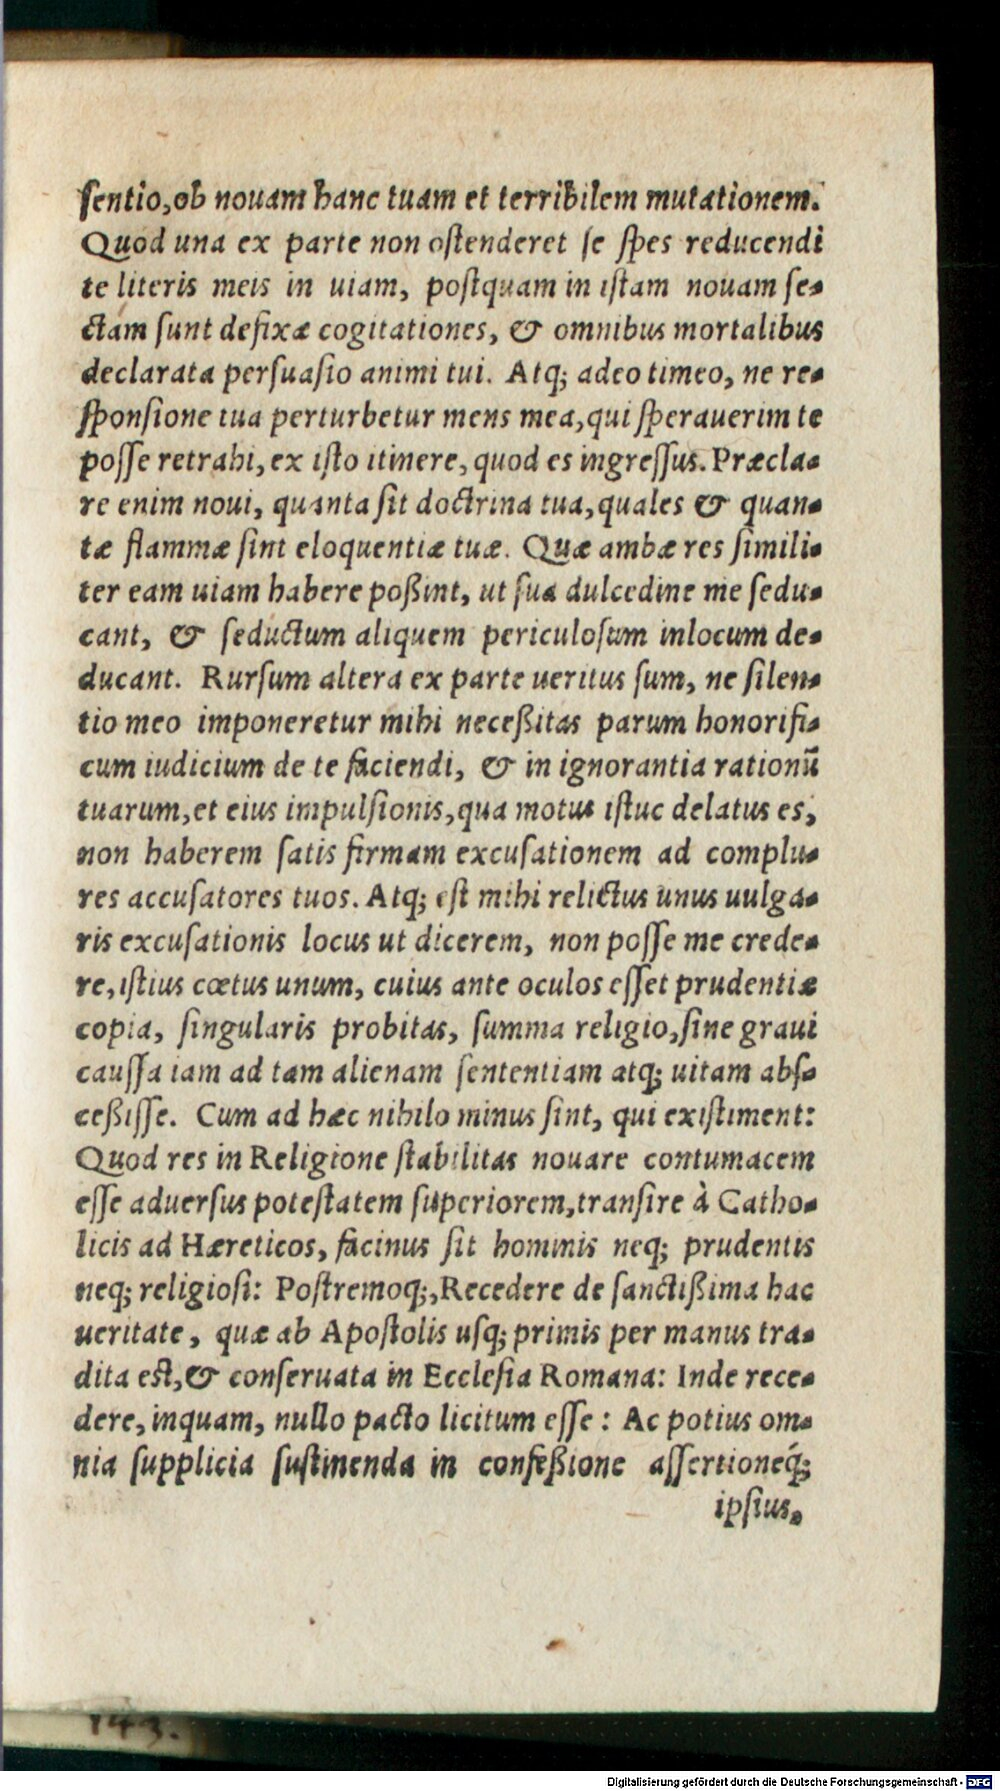 sentio,ob nouam hanc tuam et terribilem mutationem.
Quod una ex parte non ostenderet se spes reducendi
te literis meis in uiam, postquam in istam nouam se-
ctam sunt defixæ cogitationes, & omnibus mortalibus
declarata persuasio animi tui. Atq; adeo timeo, ne re-
sponsione tua perturbetur mens mea,qui sperauerim te
posse retrahi, ex isto itinere, quod es ingressus. Præcla-
re enim noui, quanta sit doctrina tua, quales & quan-
tæ flammæ sint eloquentiæ tuæ. Quæ ambæ res simili-
ter eam uiam habere poßint, ut sua dulcedine me sedu-
cant, & seductum aliquem periculosum inlocum de-
ducant. Rursum altera ex parte ueritus sum, ne silen-
tio meo imponeretur mihi neceßitas parum honorifi-
cum iudicium de te faciendi, & in ignorantia rationũ
tuarum,et eius impulsionis,qua motus istuc delatus es,
non haberem satis firmam excusationem ad complu-
res accusatores tuos. Atq; est mihi relictus unus uulga-
ris excusationis locus ut dicerem, non posse me crede-
re,istius cœtus unum, cuius ante oculos esset prudentiæ
copia, singularis probitas, summa religio,sine graui
caussa iam ad tam alienam sententiam atq; uitam abs-
ceßisse. Cum ad hæc nihilo minus sint, qui existiment:
Quod res in Religione stabilitas nouare contumacem
esse aduersus potestatem superiorem,transire à Catho-
licis ad Hæreticos, facinus sit hominis neq; prudentis
neq; religiosi: Postremoq;,Recedere de sanctißima hac
ueritate, quæ ab Apostolis usq; primis per manus tra-
dita est,& conseruata in Ecclesia Romana: Inde rece-
dere, inquam, nullo pacto licitum esse: Ac potius om-
nia supplicia sustinenda in confeßione assertioneq́;
ipsius.
143.
Digitalisierung gefördert durch die Deutsche Forschungsgemeinschaft - DFG